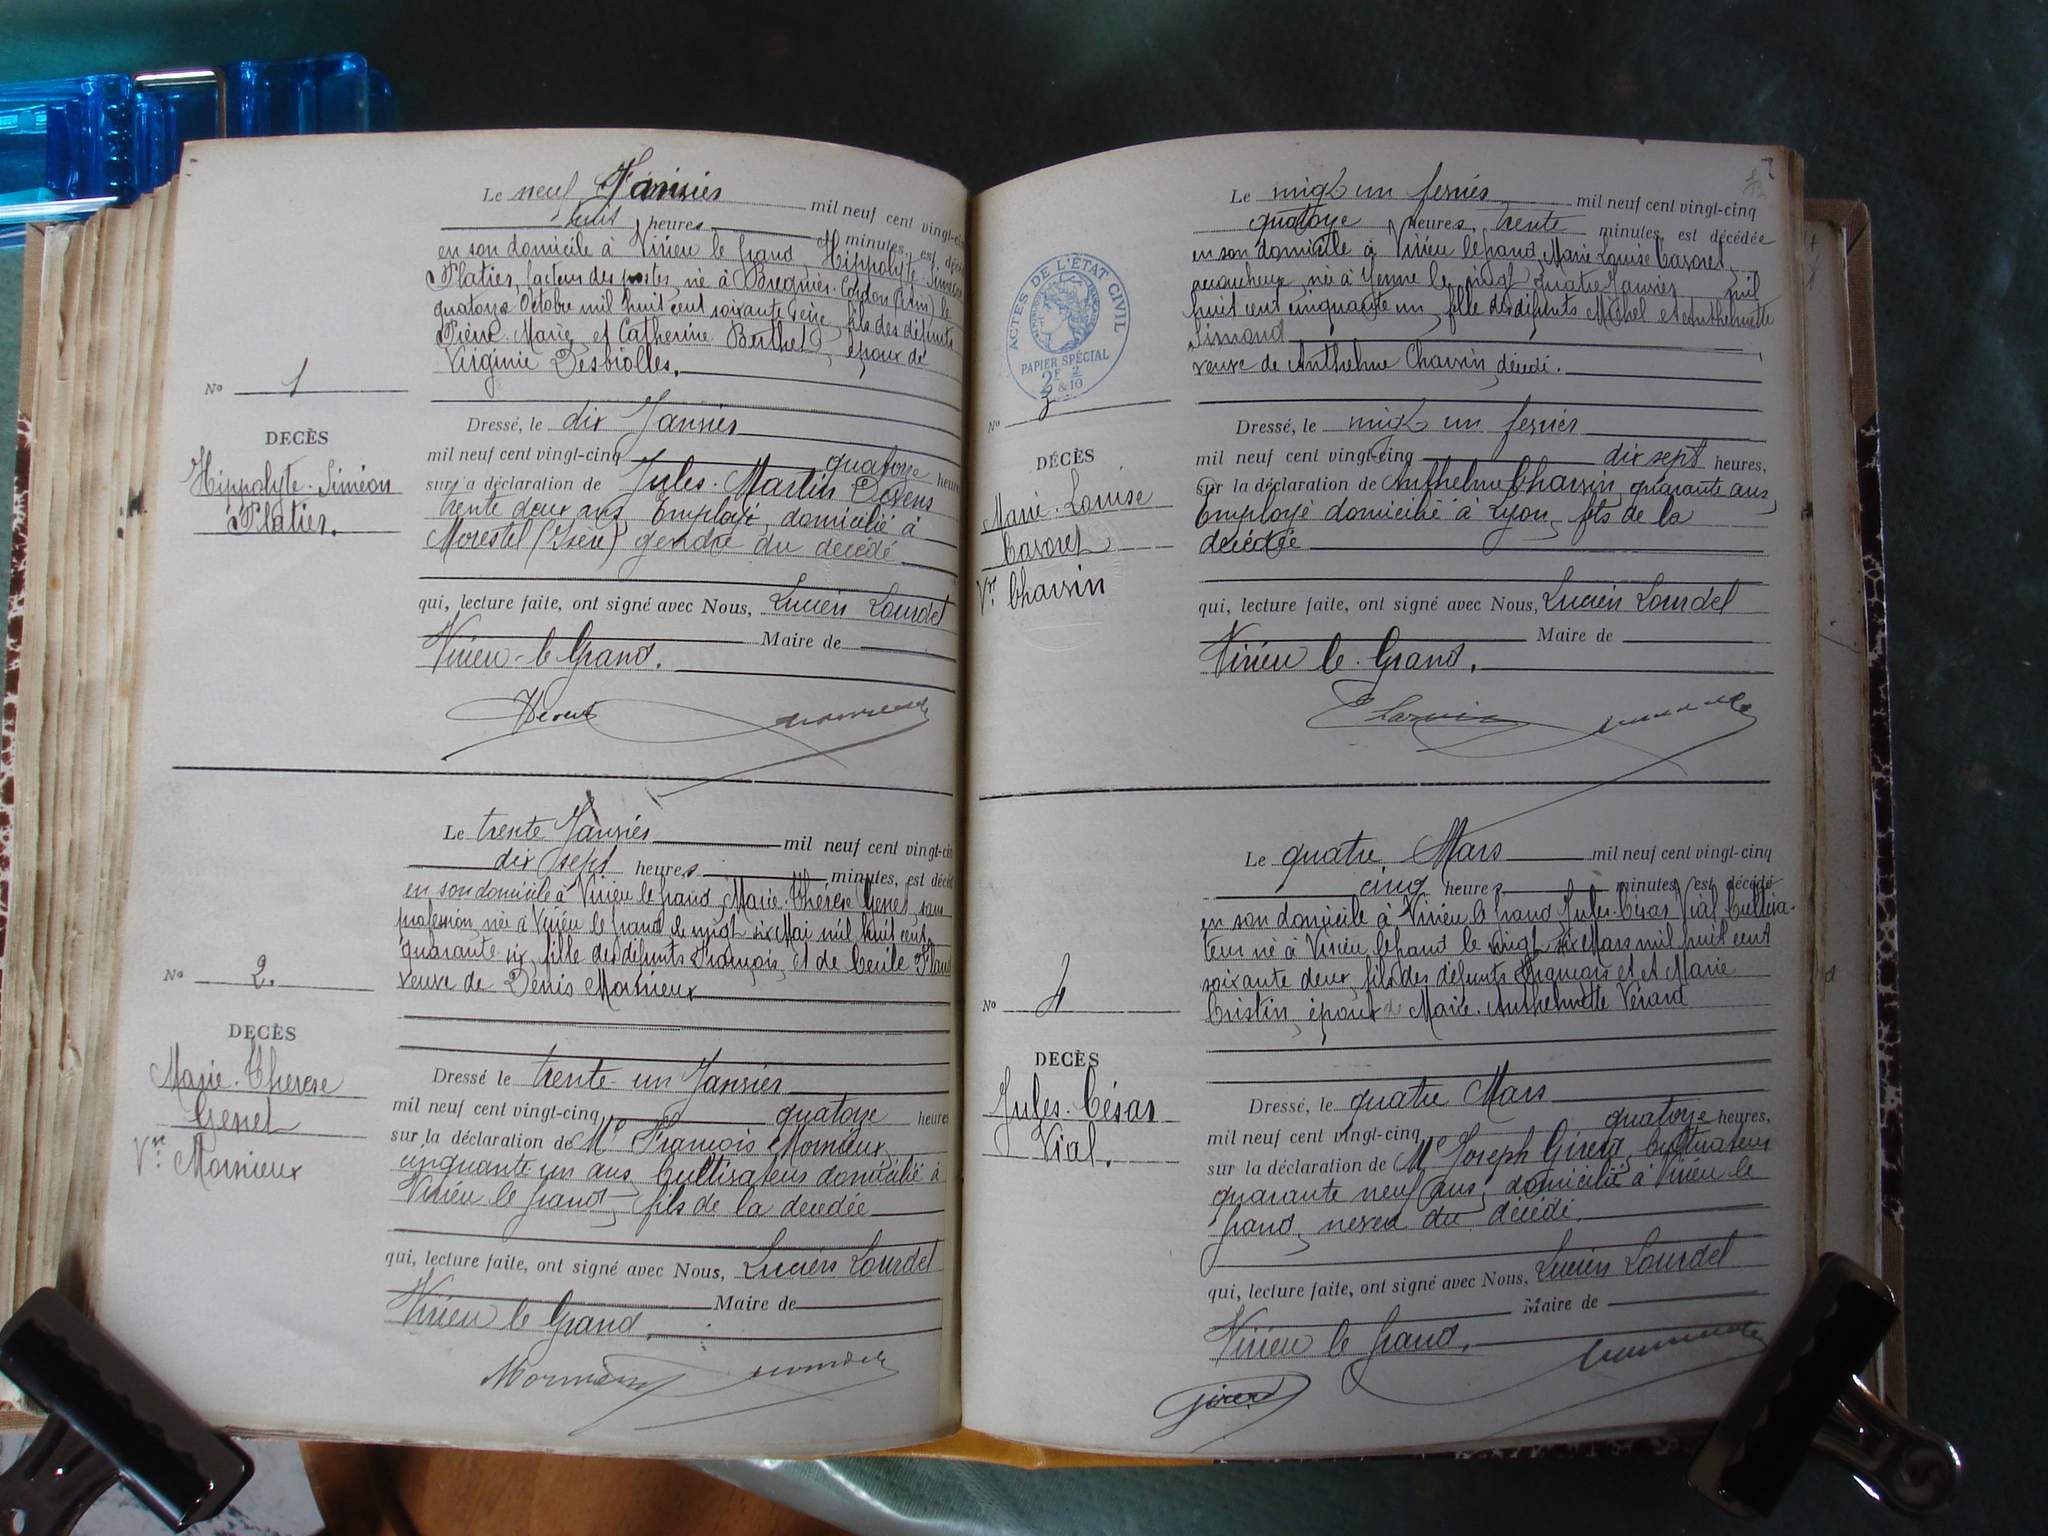 Le neuf Janvier mil neuf cent vingt-cinq
huit heures minutes, est décédé
en son domicile à Virieu le Grand, Hippolyte Siméon
Platier, facteur des postes, né à Brégnier-Cordon (Ain) le
quatorze Octobre mil huit cent soixante treize, fils des défunts
Pierre Marie et Catherine Berthet, époux de
Virginie Desbiolles.
No 1
DECÈS
Hippolyte Siméon
Platier.
Dressé, le dix Janvier
mil neuf cent vingt-cinq quatorze heures
sur la déclaration de Jules Martin
trente deux ans, Employé, domicilié à
Morestel (Isère) gendre du décédé
qui, lecture faite, ont signé avec Nous, Lucien Lourdel
Maire de
Virieu-le Grand.
Le trente Janvier mil neuf cent vingt-cinq
dix sept heures minutes, est décédée
en son domicile à Virieu le Grand, Marie Thérèse Genet, sans
profession, née à Virieu le Grand, le vingt six Mai mil huit cent
quarante six, fille des défunts François, et de Cécile
veuve de Denis Mornieux
No 2.
DECÈS
Marie Thérèse
Genet
Vve Mornieux
Dressé le trente-un Janvier
mil neuf cent vingt-cinq quatorze heures
sur la déclaration de Mr François Mornieux,
cinquante un ans, Cultivateur domicilié à
Virieu le Grand, fils de la décédée
qui, lecture faite, ont signé avec Nous, Lucien Lourdel
Maire de
Virieu le Grand.
Mornieux
Le vingt un février mil neuf cent vingt-cinq
quatorze heures, trente minutes, est décédée
en son domicile à Virieu le Grand, Marie Louise Cavoret,
accoucheuse, née à Yenne le vingt quatre Janvier mil
huit cent cinquante un, fille des défunts Michel et Anthelmette
Simond
veuve de Anthelme Charvin, décédé.
ACTES DE L'ÉTAT CIVIL
PAPIER SPÉCIAL
2F & 2/10
No 3
DÉCÈS
Marie-Louise
Cavoret
Vve Charvin
Dressé, le vingt un février
mil neuf cent vingt-cinq dix sept heures,
sur la déclaration de Anthelme Charvin, quarante ans,
Employé domicilié à Lyon, fils de la
décédée
qui, lecture faite, ont signé avec Nous, Lucien Lourdel
Maire de
Virieu le Grand.
Charvin
Le quatre Mars mil neuf cent vingt-cinq
cinq heures minutes, est décédé
en son domicile à Virieu le Grand, Jules César Vial, Cultiva-
teur né à Virieu le Grand le vingt six Mars mil huit cent
soixante deux, fils des défunts François et et Marie
Cristin, époux de Marie Anthelmette Vérard
No 4
DECÈS
Jules César
Vial.
Dressé, le quatre Mars
mil neuf cent vingt-cinq quatorze heures,
sur la déclaration de Mr Joseph Girerd, Cultivateur
quarante neuf ans, domicilié à Virieu le
Grand, neveu du décédé.
qui, lecture faite, ont signé avec Nous, Lucien Lourdel
Maire de
Virieu le Grand.
Girerd